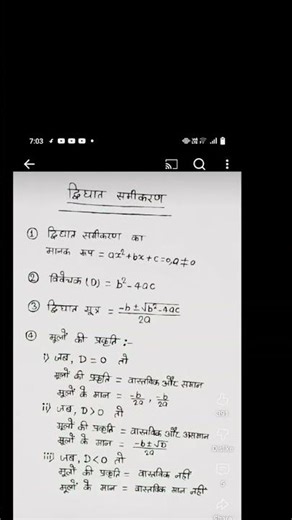 7:03
द्विघात समीकरण
① द्विघात समीकरण का
मानक रूप = ax²+bx+c=0, a≠0
② विवेचक (D) = b²-4ac
③ द्विघात सूत्र = -b±√b²-4ac / 2a
④ मूलों की प्रकृति :-
i) जब, D = 0 तो
मूलों की प्रकृति = वास्तविक और समान
मूलों के मान = -b/2a, -b/2a
ii) जब, D > 0 तो
मूलों की प्रकृति = वास्तविक और असमान
मूलों के मान = -b±√D / 2a
iii) जब, D < 0 तो
मूलों की प्रकृति = वास्तविक नहीं
मूलों के मान = वास्तविक मान नहीं